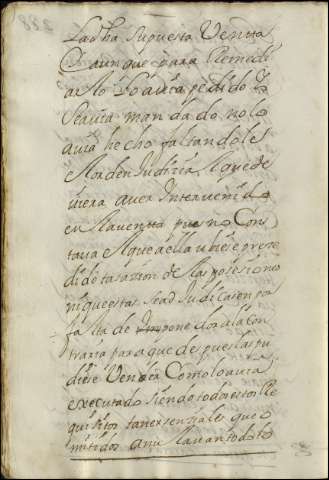 La dha supuesta Ventta
Y aunque para Remedi
arlo Lo avia pedido Y
Se avia mandado no lo
avia hecho faltandole
el orden Judizial que de
viera aver Intervenido
en la ventta pues no Cons
tava el que a ella ubiese prese
dido tasazion de las posesiones
ni que estas se adjudicasen por
falta de Impone dor a la con
traria para que despues las pu
diese Vender Como lo avia
executado siendo todos estos Re
quisitos tan exsensiales que o
mitidos anulavan todo lo